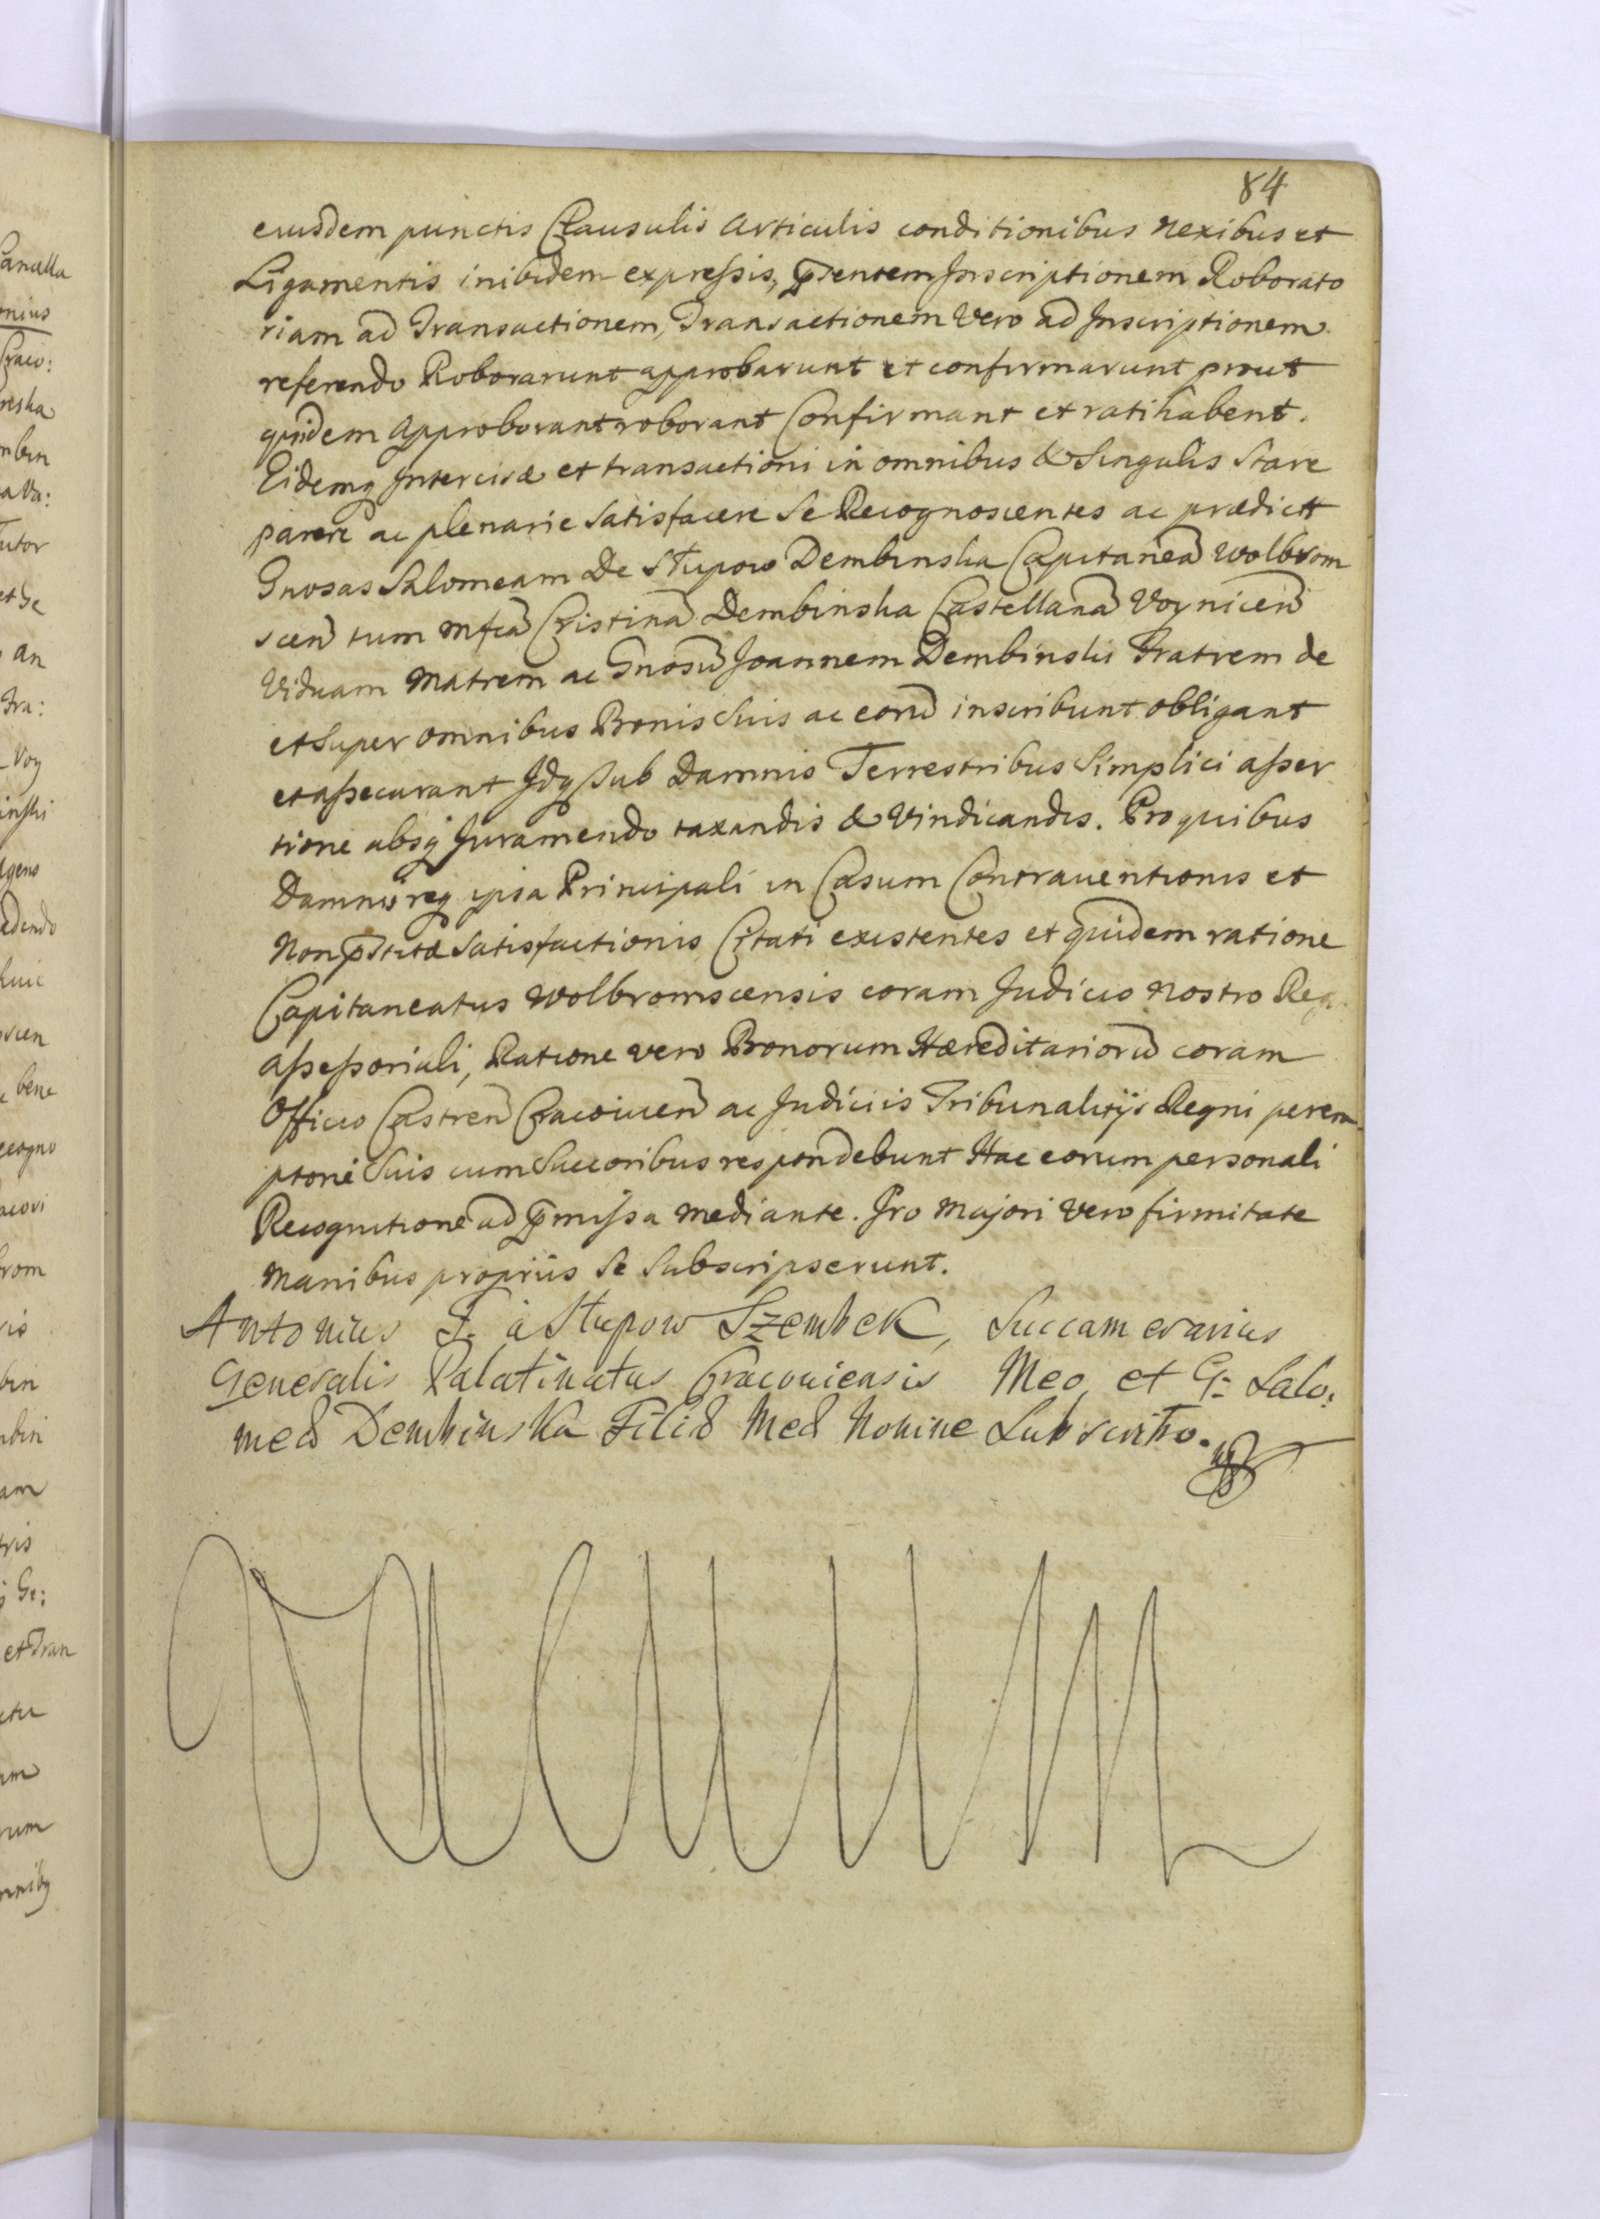 84
eiusdem punctis Clausulis Articulis conditionibus nexibus et
Ligamentis inibidem expressis, p̄sentem Inscriptionem Roborato
riam ad Transactionem, Transactionem Vero ad Inscriptionem
referendo Roborarunt approbarunt et confirmarunt prout
quidem Approbant roborant Confirmant et ratihabent.
Eidemq Intercisæ et transactioni in omnibus & Singulis Stare
parere ac plenarie Satisfacere Se Recognoscentes ac prædictt
Gnosas Salomeam De Słupow Dembinska Capitaneā Wolbrom
scen̄ tum Mfcā Cristinā Dembinska Castellanā Voynicen̄
Viduam Matrem ac Gnosū Joannem Dembinski Fratrem de
et Super omnibus Bonis Suis ac eorū inscribunt obligant
et assecurant Idq Sub Damnis Terrestribus Simplici asser
tione absq Juramendo taxandis & Vindicandis. Pro quibus
Damnis req ipsa Principali in Casum Contraventionis et
Non p̄stitæ Satisfactionis Citati existentes et quidem ratione
Capitaneatus Wolbromscensis coram Judicio Nostro Reg
assessoriali, Ratione vero Bonorum Hæreditariorū coram
Officio Castren̄ Cracovicen̄ ac Judiciis Tribunalitijs Regni perem
ptorie Suis cum Succoribus respondebunt Hac eorum personali
Recognitione ad p̄missa mediante. Pro Majori Vero firmitate
Manibus propriis Se Subscripserunt.
Antonius F. à Słupow Szembek, Succamerarius
Generalis Palatinatus Cracoviensis Meo et G: Salo:
meæ Dembinska Filiæ Meæ Nomine Subscribo.